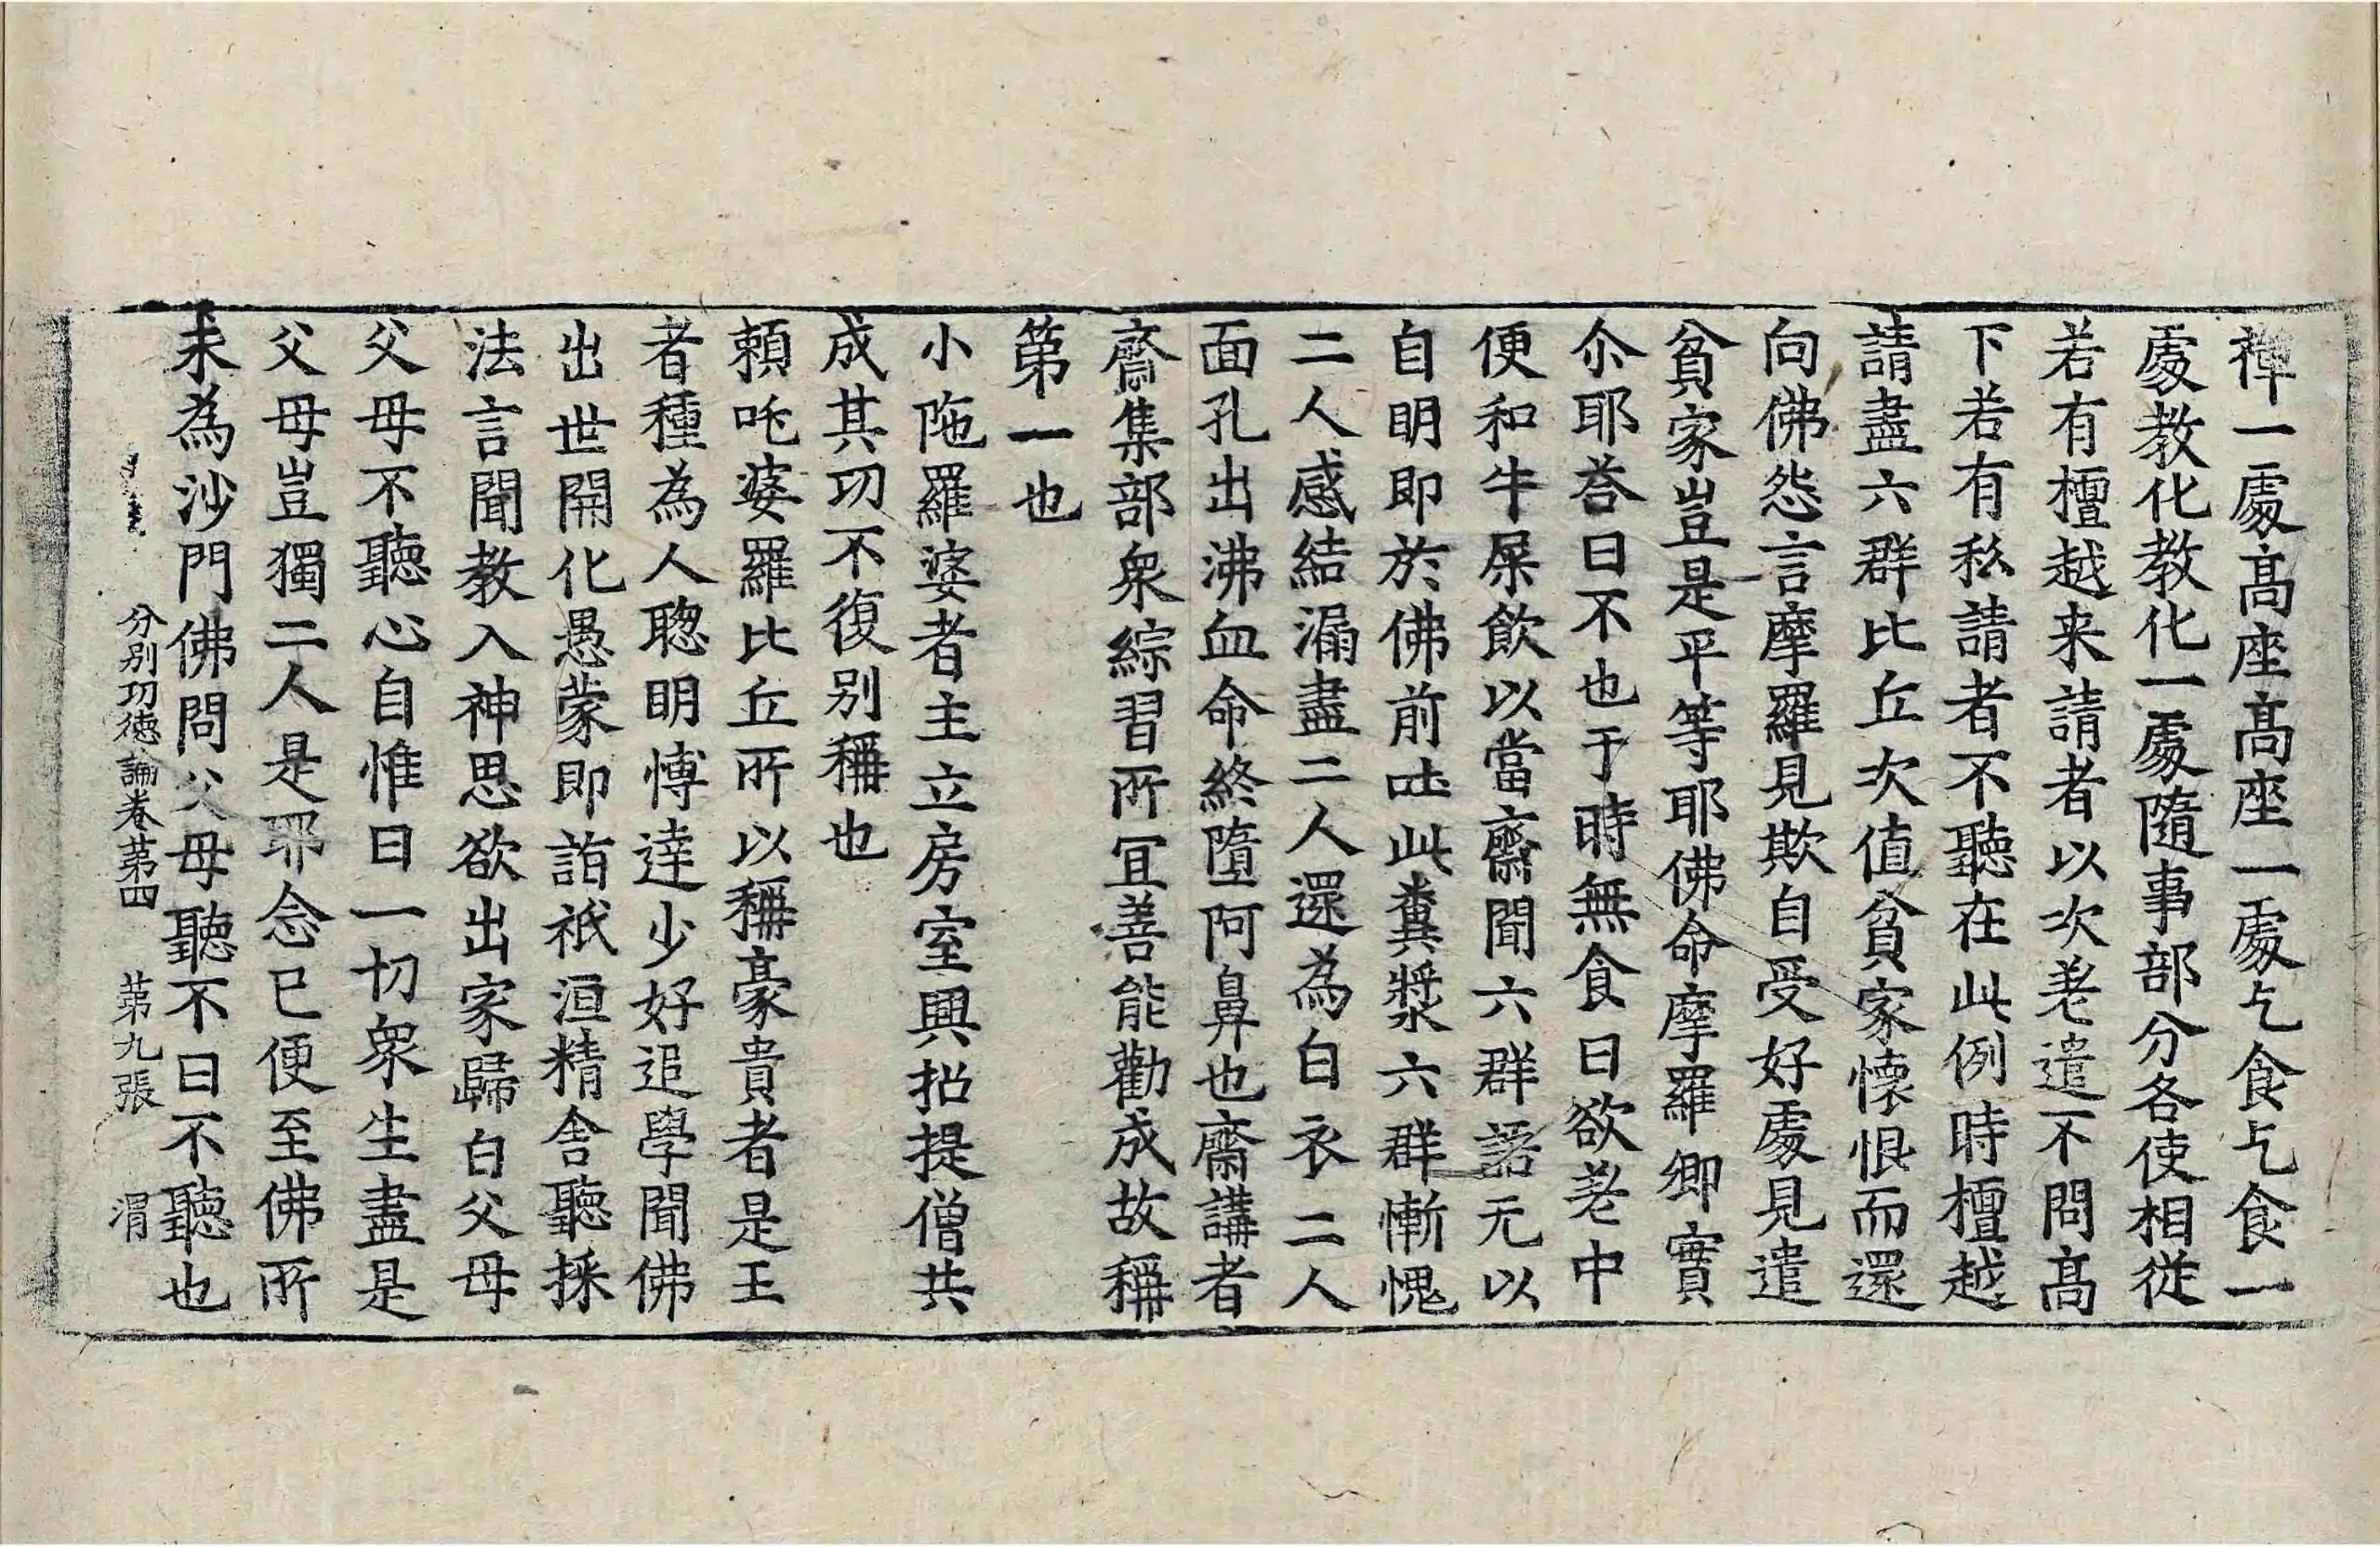 禪一處高座高座一處乞食乞食一
處教化教化一處隨事部分各使相從
若有檀越来請者以次差遣不問高
下若有私請者不聽在此例時檀越
請盡六群比丘次值貧家懷恨而還
向佛怨言摩羅見欺自受好處見遣
貧家豈是平等耶佛命摩羅卿實
尒耶荅曰不也于時無食曰欲差中
便和牛屎飲以當齋聞六群語无以
自明即於佛前吐此糞漿六群慚愧
二人感結漏盡二人還為白衣二人
面孔出沸血命終墮阿鼻也齋講者
齋集部衆綜習所冝善能勸成故稱
第一也
小陁羅婆者主立房室興招提僧共
成其功不復别稱也
頼吒婆羅比丘所以稱豪貴者是王
者種為人聦明博達少好追學聞佛
出世開化愚蒙即詣祇洹精舎聽採
法言聞教入神思欲出家歸白父母
父母不聽心自惟曰一切衆生盡是
父母豈獨二人是耶念已便至佛所
求為沙門佛問父母聽不曰不聽也
分别功徳論卷苐四 苐九張 渭